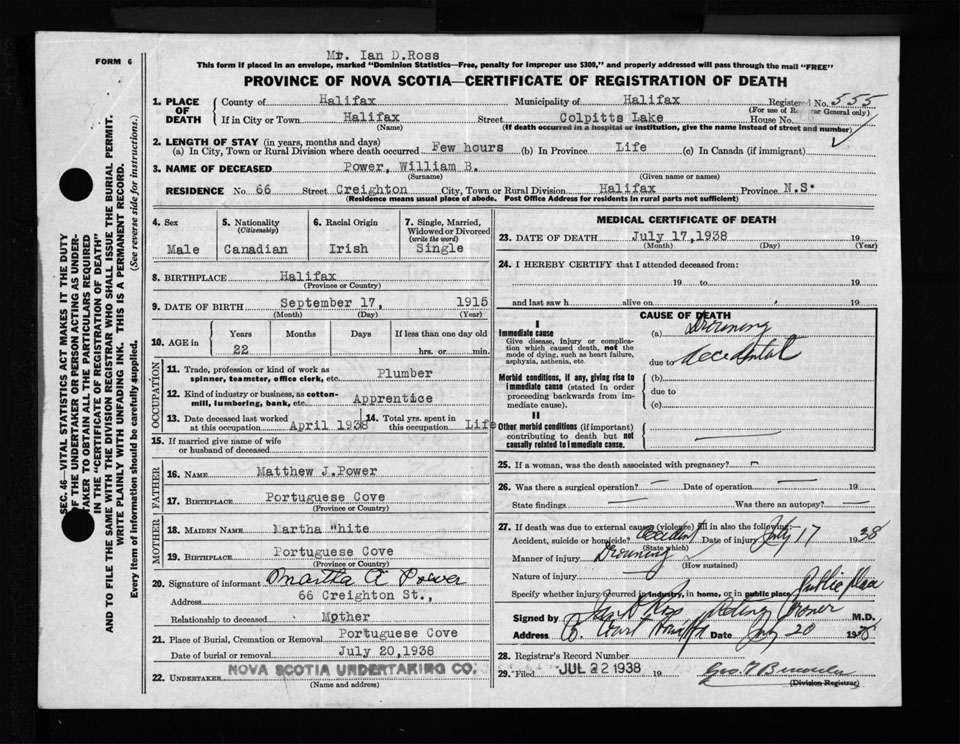 Mr. Ian D.Ross
FORM 6
This form if placed in an envelope, marked "Dominion Statistics—Free, penalty for improper use $300," and properly addressed will pass through the mail "FREE"
PROVINCE OF NOVA SCOTIA—CERTIFICATE OF REGISTRATION OF DEATH
SEC. 46—VITAL STATISTICS ACT MAKES IT THE DUTY
OF THE UNDERTAKER OR PERSON ACTING AS UNDER-
TAKER TO OBTAIN ALL THE PARTICULARS REQUIRED
IN THE "CERTIFICATE OF REGISTRATION OF DEATH"
AND TO FILE THE SAME WITH THE DIVISION REGISTRAR WHO SHALL ISSUE THE BURIAL PERMIT.
WRITE PLAINLY WITH UNFADING INK. THIS IS A PERMANENT RECORD.
Every item of information should be carefully supplied. (See reverse side for instructions.)
1. PLACE OF DEATH
County of Halifax Municipality of Halifax Registered No. 555
(For use of Registrar General only)
If in City or Town Halifax Street Colpitts Lake House No.
(Name) (If death occurred in a hospital or institution, give the name instead of street and number)
2. LENGTH OF STAY (in years, months and days)
(a) In City, Town or Rural Division where death occurred Few hours (b) In Province Life (c) In Canada (if immigrant)
3. NAME OF DECEASED Power, William B.
(Surname) (Given name or names)
RESIDENCE No. 66 Street Creighton City, Town or Rural Division Halifax Province N.S.
(Residence means usual place of abode. Post Office Address for residents in rural parts not sufficient)
4. Sex
Male
5. Nationality
(Citizenship)
Canadian
6. Racial Origin
Irish
7. Single, Married,
Widowed or Divorced
(write the word)
Single
8. BIRTHPLACE Halifax
(Province or Country)
9. DATE OF BIRTH September 17, 1915
(Month) (Day) (Year)
10. AGE in
Years Months Days If less than one day old
22 hrs. or min.
OCCUPATION
11. Trade, profession or kind of work as
spinner, teamster, office clerk, etc. Plumber
12. Kind of industry or business, as cotton-
mill, lumbering, bank, etc. Apprentice
13. Date deceased last worked
at this occupation April 1938
14. Total yrs. spent in
this occupation Life
15. If married give name of wife
or husband of deceased
FATHER
16. NAME Matthew J.Power
17. BIRTHPLACE Portuguese Cove
(Province or Country)
MOTHER
18. MAIDEN NAME Martha "hite
19. BIRTHPLACE Portuguese Cove
(Province or Country)
20. Signature of informant Martha A Power
Address 66 Creighton St.,
Relationship to deceased Mother
21. Place of Burial, Cremation or Removal Portuguese Cove
Date of burial or removal July 20,1938
22. UNDERTAKER NOVA SCOTIA UNDERTAKING CO.
(Name and address)
MEDICAL CERTIFICATE OF DEATH
23. DATE OF DEATH July 17,1938 19
(Month) (Day) (Year)
24. I HEREBY CERTIFY that I attended deceased from:
19 to 19
and last saw h alive on 19
CAUSE OF DEATH
I
Immediate cause
Give disease, injury or complica-
tion which caused death, not the
mode of dying, such as heart failure,
asphyxia, asthenia, etc.
(a) Drowning
due to Accidental
Morbid conditions, if any, giving rise to
immediate cause (stated in order
proceeding backwards from im-
mediate cause).
(b)
due to
(c)
II
Other morbid conditions (if important)
contributing to death but not
causally related to immediate cause.
25. If a woman, was the death associated with pregnancy?
26. Was there a surgical operation? — Date of operation — 19
State findings — Was there an autopsy? —
27. If death was due to external causes (violence) fill in also the following:—
Accident, suicide or homicide? Accident Date of injury July 17 1938
(State which)
Manner of injury Drowning
(How sustained)
Nature of injury
Specify whether injury occurred in industry, in home, or in public place Public place
Signed by Ian D Ross Acting Coroner M.D.
Address Co. Court House Date July 20 1938
28. Registrar's Record Number
29. Filed JUL 22 1938 19
(Division Registrar)